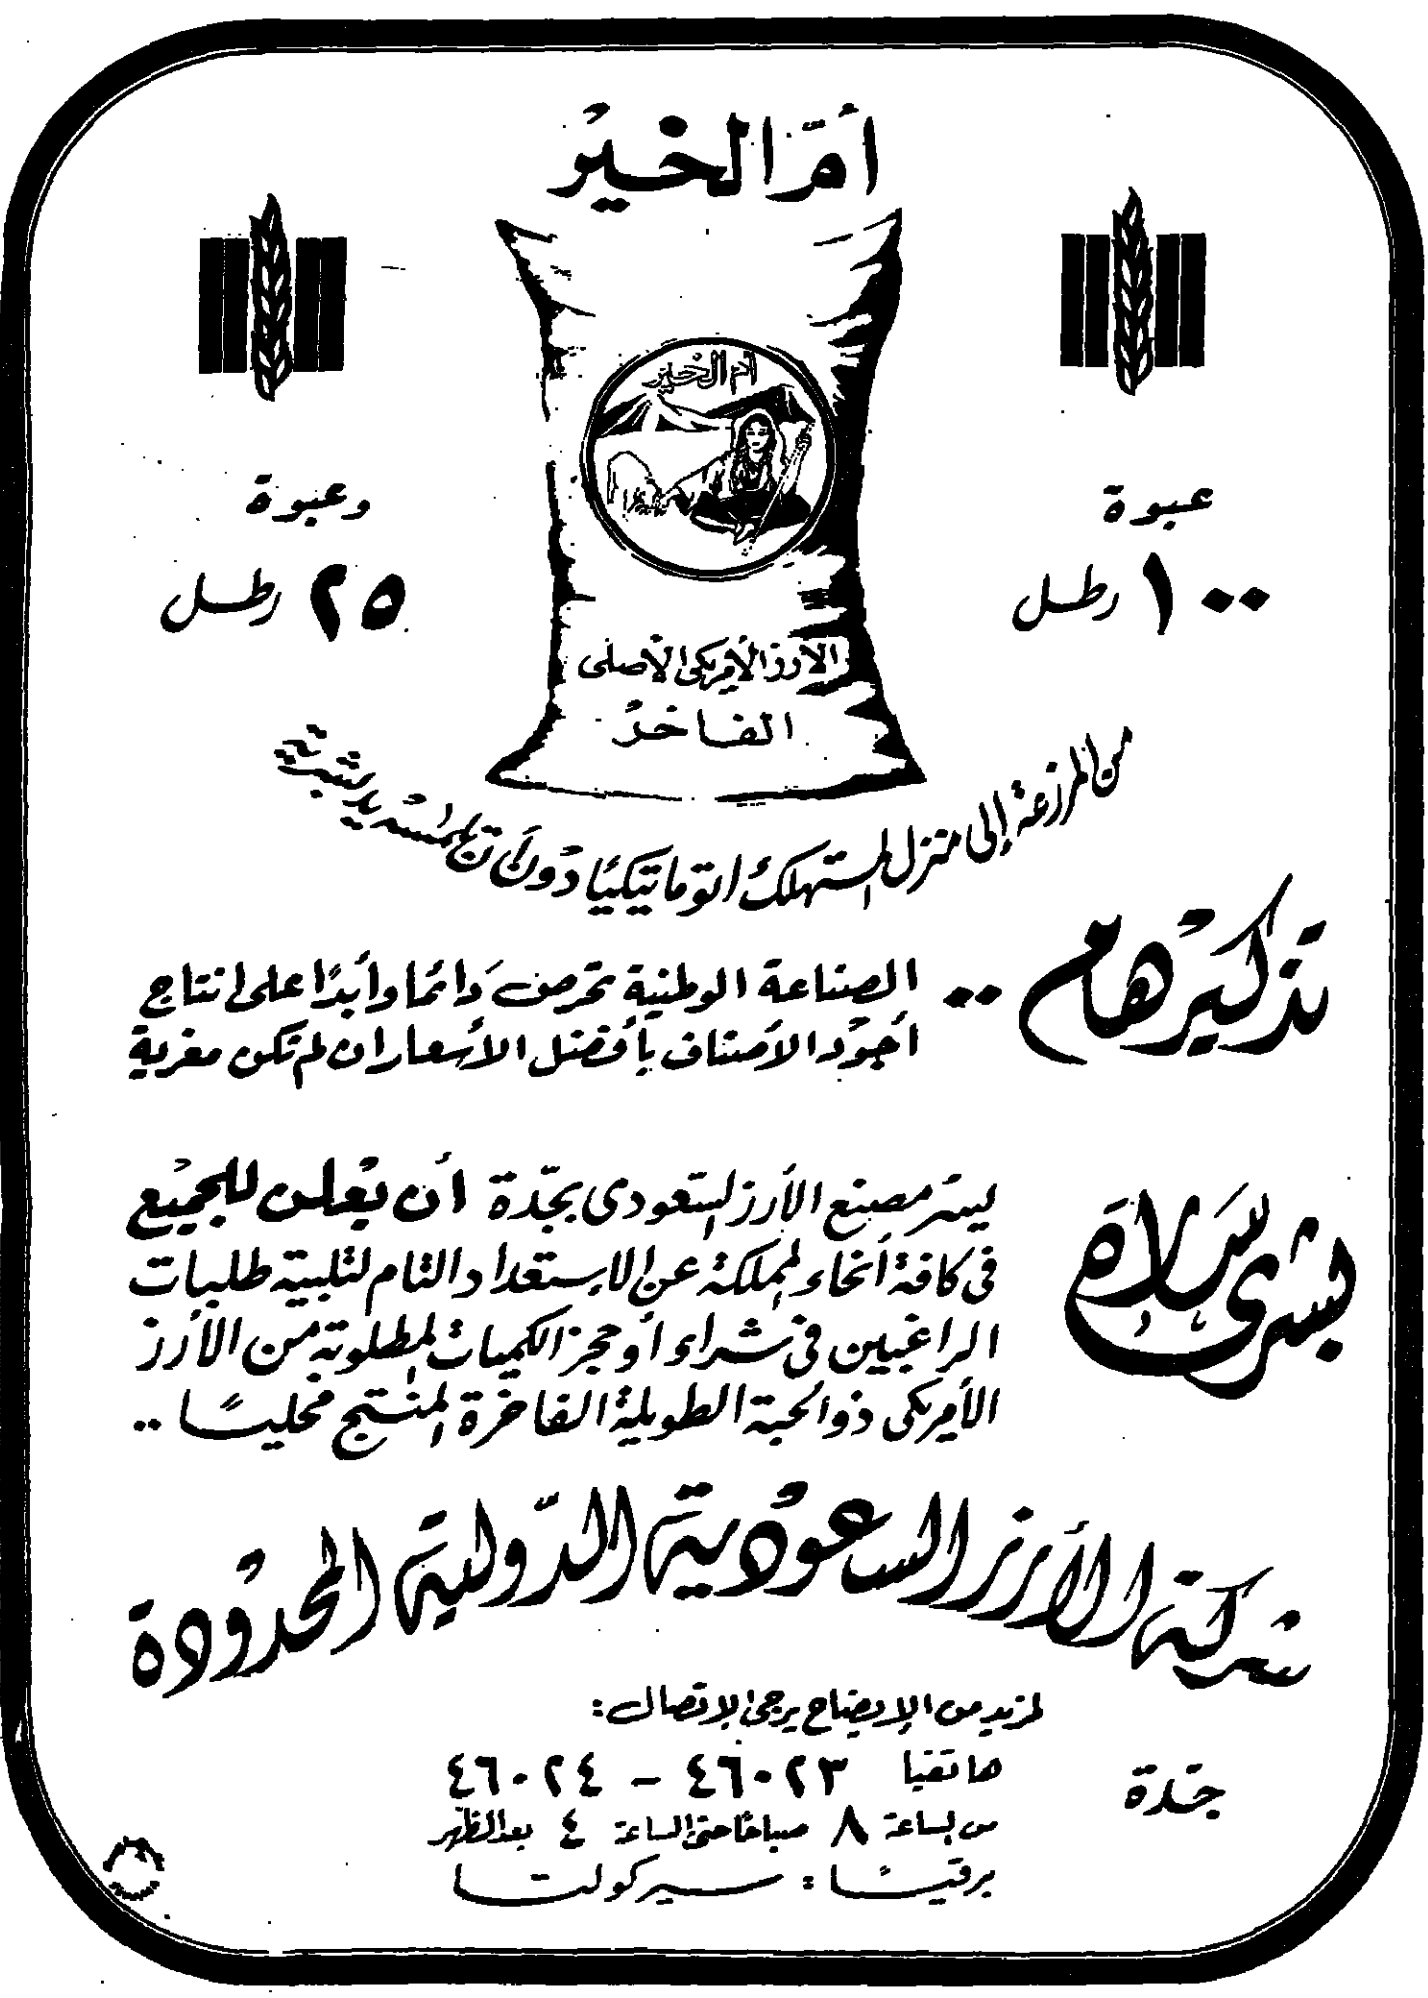 أمّ الخير
أم الخير
عبوة
١٠٠ رطل
وعبوة
٢٥ رطل
الأرز الأمريكى الأصلى
الفاخر
من المزرعة إلى منزل المستهلك اتوماتيكيًا دون أن تلمسه يد بشرية
تذكير هام ..
الصناعة الوطنية تحرص دَائمًا وأبدًا على انتاج
أجوَد الأصناف بأفضل الأسعار ان لم تكن مغرية
بشرى سارة
يسر مصنع الأرز السعودى بجدّة أن يعلن للجميع
فى كافة أنحاء المملكة عن الاستعداد التام لتلبية طلبات
الراغبين فى شراء أو حجز الكميات المطلوبة من الأرز
الأمريكى ذو الحبة الطويلة الفاخرة المنتج محليًا ..
شركة الأرز السعودية الدّولية المحدودة
لمزيد من الإيضاح يرجى الإتصال :
جدة
هاتفيا ٤٦٠٢٣ - ٤٦٠٢٤
من الساعة ٨ صباحًا حتى الساعة ٤ بعد الظهر
برقيًا : سيركولت